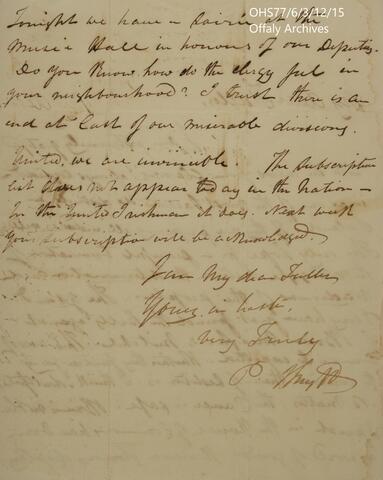 OHS77/6/3/12/15
Offaly Archives
Tonight we have a Soirée at the
Music Hall in honour of our Deputies.
Do you know how do the clergy feel in
your neighbourhood? I trust there is an
end at last of our miserable divisions.
United we are invincible. The subscription
list does not appear today in the Nation –
In the United Irishman it does. Next week
your subscription will be acknowledged.
I am My dear
Yours in haste,
Very Truly
P.